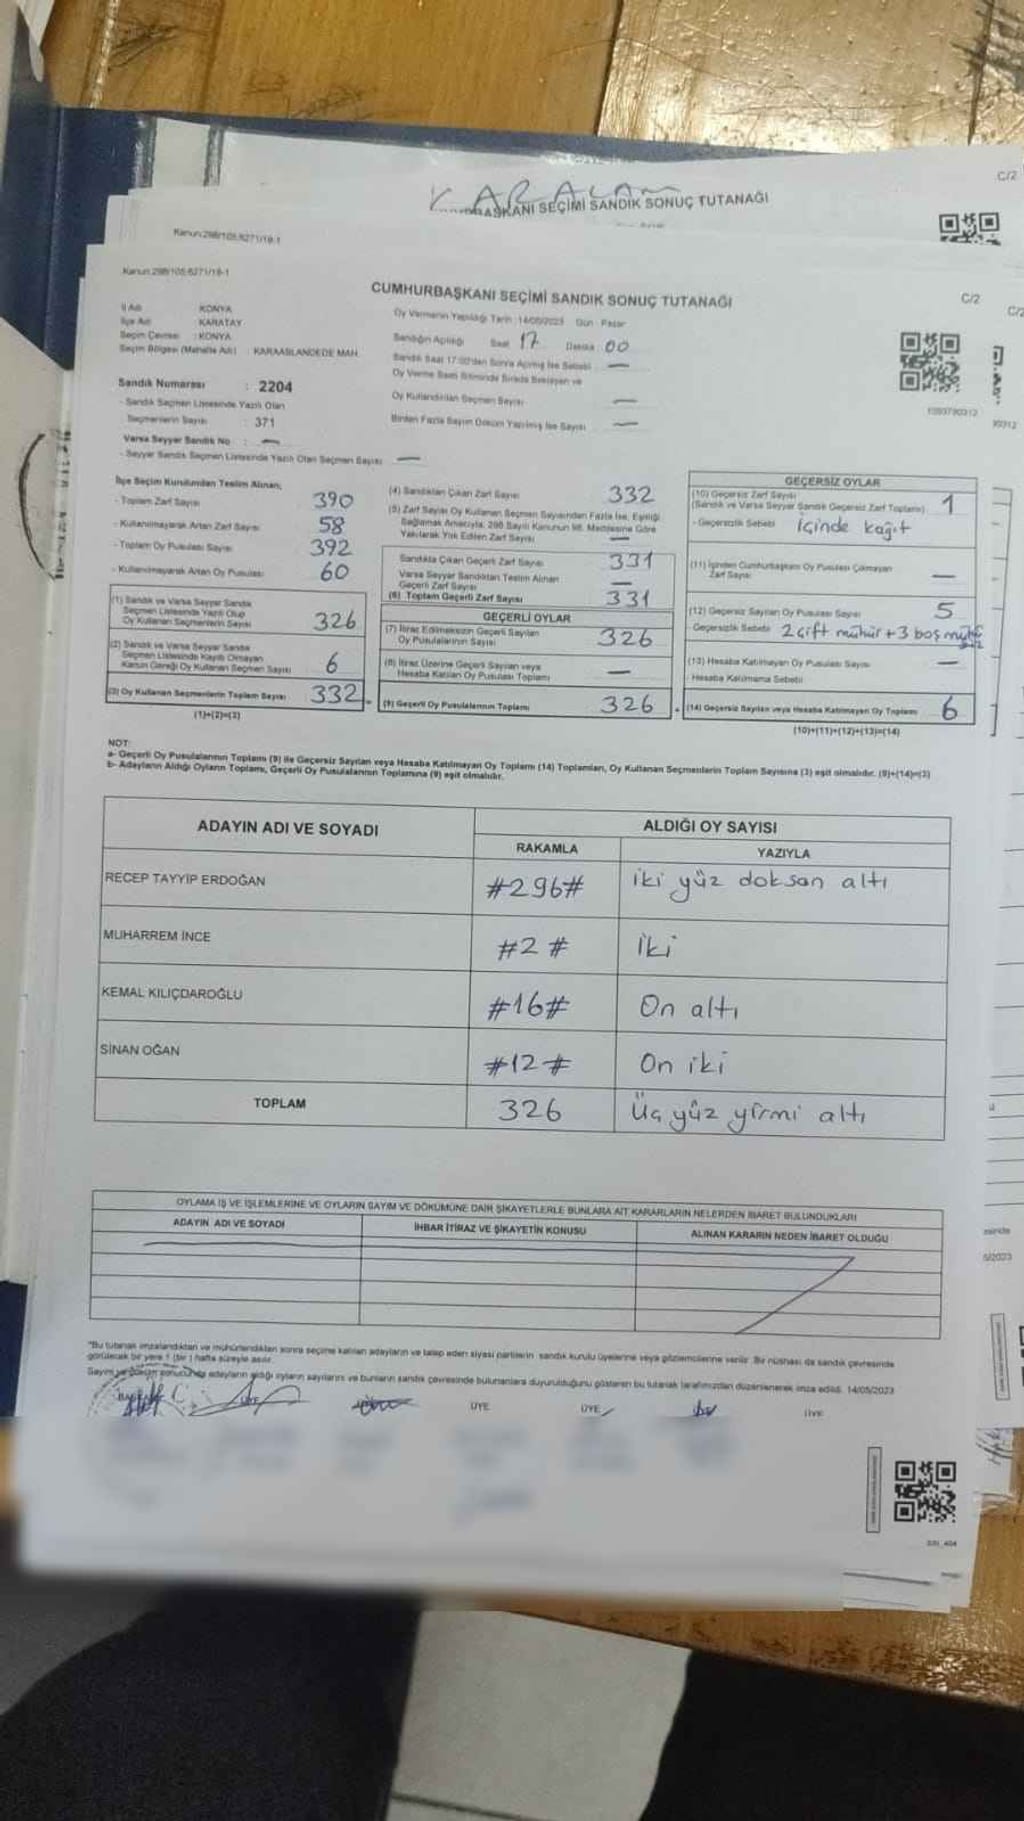 C/2
KARALAM
BAŞKANI SEÇİMİ SANDIK SONUÇ TUTANAĞI
Kanun:298/105;6271/19-1
Kanun:298/105;6271/19-1
CUMHURBAŞKANI SEÇİMİ SANDIK SONUÇ TUTANAĞI
C/2
İl Adı KONYA
İlçe Adı KARATAY
Seçim Çevresi : KONYA
Seçim Bölgesi (Mahalle Adı) : KARAASLANDEDE MAH.
Oy Vermenin Yapıldığı Tarih : 14/05/2023 Gün : Pazar
Sandığın Açıldığı Saat 17 Dakika 00
Sandık Saat 17:00'den Sonra Açılmış İse Sebebi —
Oy Verme Saati Bitiminde Sırada Bekleyen ve
Oy Kullandırılan Seçmen Sayısı —
Birden Fazla Sayım Döküm Yapılmış İse Sayısı —
Sandık Numarası : 2204
- Sandık Seçmen Listesinde Yazılı Olan
Seçmenlerin Sayısı : 371
Varsa Seyyar Sandık No : —
- Seyyar Sandık Seçmen Listesinde Yazılı Olan Seçmen Sayısı —
İlçe Seçim Kurulundan Teslim Alınan;
- Toplam Zarf Sayısı 390
- Kullanılmayarak Artan Zarf Sayısı 58
- Toplam Oy Pusulası Sayısı 392
- Kullanılmayarak Artan Oy Pusulası 60
(1) Sandık ve Varsa Seyyar Sandık
Seçmen Listesinde Yazılı Olup
Oy Kullanan Seçmenlerin Sayısı 326
(2) Sandık ve Varsa Seyyar Sandık
Seçmen Listesinde Kayıtlı Olmayan
Kanun Gereği Oy Kullanan Seçmen Sayısı 6
(3) Oy Kullanan Seçmenlerin Toplam Sayısı 332
(1)+(2)=(3)
(4) Sandıktan Çıkan Zarf Sayısı 332
(5) Zarf Sayısı Oy Kullanan Seçmen Sayısından Fazla İse, Eşitliği
Sağlamak Amacıyla, 298 Sayılı Kanunun 98. Maddesine Göre
Yakılarak Yok Edilen Zarf Sayısı —
Sandıkta Çıkan Geçerli Zarf Sayısı 331
Varsa Seyyar Sandıktan Teslim Alınan
Geçerli Zarf Sayısı —
(6) Toplam Geçerli Zarf Sayısı 331
GEÇERLİ OYLAR
(7) İtiraz Edilmeksizin Geçerli Sayılan
Oy Pusulalarının Sayısı 326
(8) İtiraz Üzerine Geçerli Sayılan veya
Hesaba Katılan Oy Pusulası Toplamı —
(9) Geçerli Oy Pusulalarının Toplamı 326
GEÇERSİZ OYLAR
(10) Geçersiz Zarf Sayısı
(Sandık ve Varsa Seyyar Sandık Geçersiz Zarf Toplamı) 1
- Geçersizlik Sebebi içinde kağıt
(11) İçinden Cumhurbaşkanı Oy Pusulası Çıkmayan
Zarf Sayısı —
(12) Geçersiz Sayılan Oy Pusulası Sayısı 5
Geçersizlik Sebebi 2 çift mühür + 3 boş
(13) Hesaba Katılmayan Oy Pusulası Sayısı —
Hesaba Katılmama Sebebi
(14) Geçersiz Sayılan veya Hesaba Katılmayan Oy Toplamı 6
(10)+(11)+(12)+(13)=(14)
NOT:
a- Geçerli Oy Pusulalarının Toplamı (9) ile Geçersiz Sayılan veya Hesaba Katılmayan Oy Toplamı (14) Toplamları, Oy Kullanan Seçmenlerin Toplam Sayısına (3) eşit olmalıdır. (9)+(14)=(3)
b- Adayların Aldığı Oyların Toplamı, Geçerli Oy Pusulalarının Toplamına (9) eşit olmalıdır.
ADAYIN ADI VE SOYADI
ALDIĞI OY SAYISI
RAKAMLA YAZIYLA
RECEP TAYYİP ERDOĞAN #296# iki yüz doksan altı
MUHARREM İNCE #2# İki
KEMAL KILIÇDAROĞLU #16# On altı
SİNAN OĞAN #12# On iki
TOPLAM 326 Üç yüz yirmi altı
OYLAMA İŞ VE İŞLEMLERİNE VE OYLARIN SAYIM VE DÖKÜMÜNE DAİR ŞİKAYETLERLE BUNLARA AİT KARARLARIN NELERDEN İBARET BULUNDUKLARI
ADAYIN ADI VE SOYADI İHBAR İTİRAZ VE ŞİKAYETİN KONUSU ALINAN KARARIN NEDEN İBARET OLDUĞU
"Bu tutanak imzalandıktan ve mühürlendikten sonra seçime katılan adayların ve talep eden siyasi partilerin sandık kurulu üyelerine veya gözlemcilerine verilir. Bir nüshası da sandık çevresinde
görülecek bir yere 1 (bir) hafta süreyle asılır.
Sayım ve döküm sonucunda adayların aldığı oyların sayılarını ve bunların sandık çevresinde bulunanlara duyurulduğunu gösteren bu tutanak tarafımızdan düzenlenerek imza edildi. 14/05/2023
ÜYE ÜYE ÜYE ÜYE